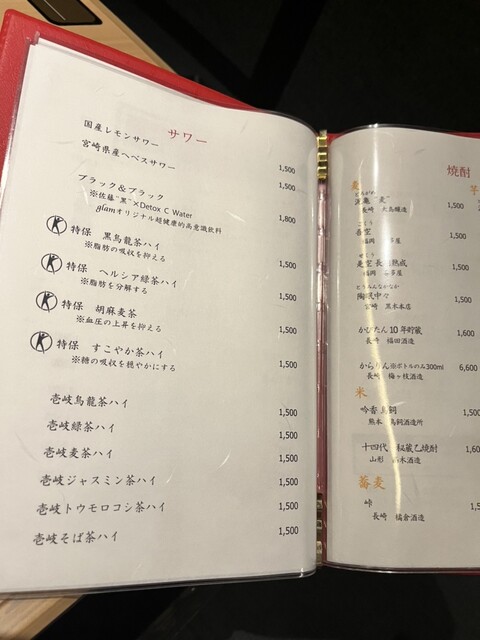 サワー
国産レモンサワー 1,500
宮崎県産へべスサワー 1,500
ブラック&ブラック 1,800
※佐藤"黒"×Detox C Water
glamオリジナル超健康的高意識飲料
特保 黒烏龍茶ハイ 1,500
※脂肪の吸収を抑える
特保 ヘルシア緑茶ハイ 1,500
※脂肪を分解する
特保 胡麻麦茶 1,500
※血圧の上昇を抑える
特保 すこやか茶ハイ 1,500
※糖の吸収を穏やかにする
壱岐烏龍茶ハイ 1,500
壱岐緑茶ハイ 1,500
壱岐麦茶ハイ 1,500
壱岐ジャスミン茶ハイ 1,500
壱岐トウモロコシ茶ハイ 1,500
壱岐そば茶ハイ 1,500
焼酎
麦
どろがめ
泥亀 "麦" 1,500
長崎 大島醸造
ごくう
吾空 1,500
福岡
麦空 長期熟成 1,500
福岡
とうみんなかなか
陶眠中々 1,500
宮崎 黒木本店
かぴたん10年貯蔵 1,600
長崎 福田酒造
からりん※ボトルのみ300ml 6,600
長崎 梅ヶ枝酒造
米
吟香鳥飼 1,500
熊本 鳥飼酒造所
十四代 秘蔵乙焼酎
山形 高木酒造
蕎麦
峠
長崎 橘倉酒造